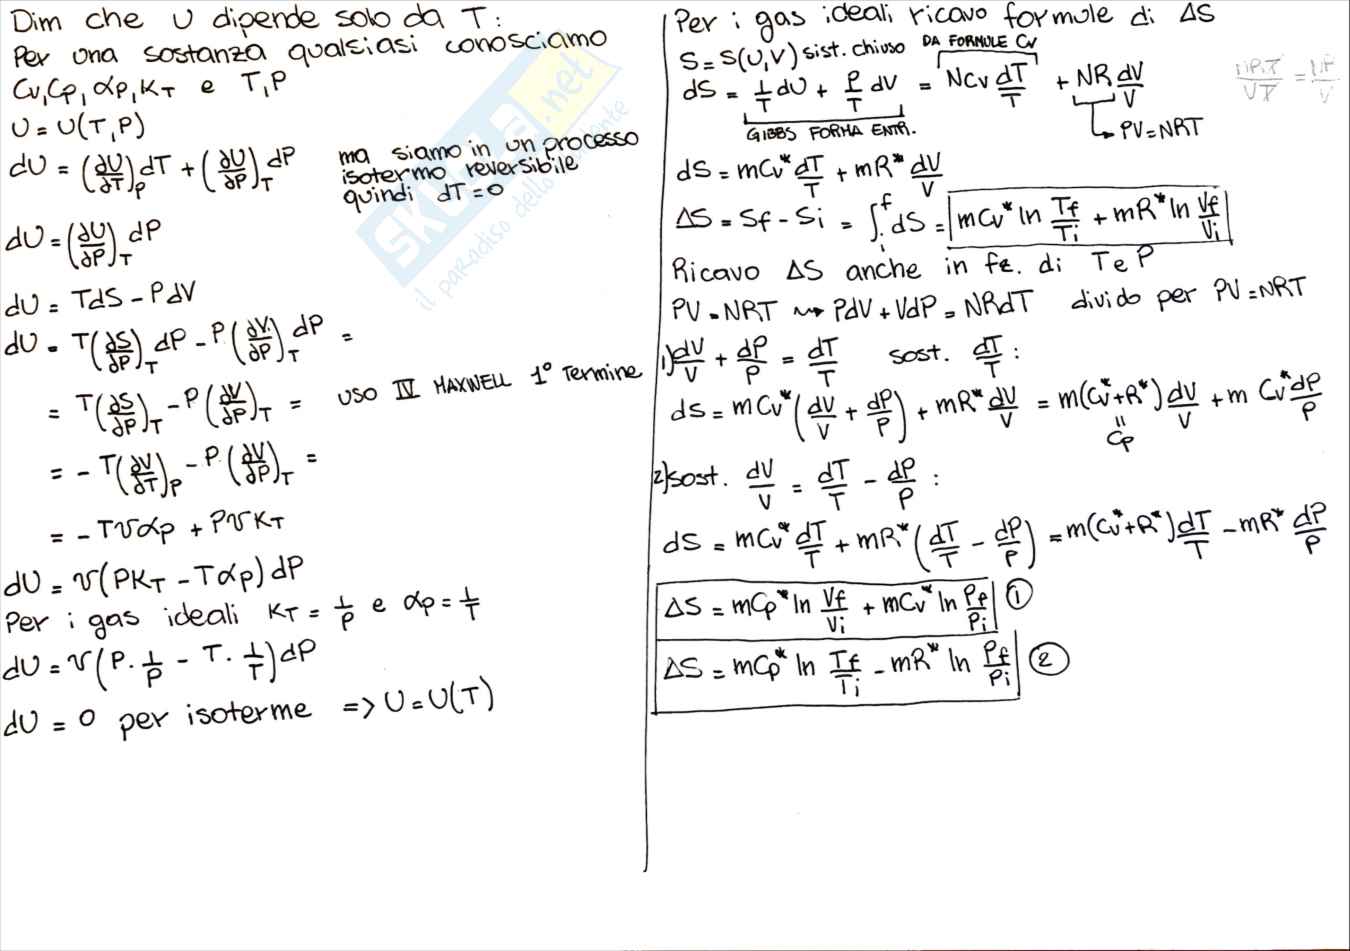 Dim che U dipende solo da T:
Per una sostanza qualsiasi conosciamo
Cv, Cp, αp, KT e T, P
U = U(T, P)
dU = (∂U/∂T)_P dT + (∂U/∂P)_T dP
ma siamo in un processo
isotermo reversibile
quindi dT = 0
dU = (∂U/∂P)_T dP
dU = TdS - PdV
dU = T(∂S/∂P)_T dP - P(∂V/∂P)_T dP =
= T(∂S/∂P)_T - P(∂V/∂P)_T = USO IV MAXWELL 1° Termine
= - T(∂V/∂T)_P - P(∂V/∂P)_T =
= - Tvαp + PvKT
dU = v(PKT - Tαp) dP
Per i gas ideali KT = 1/P e αp = 1/T
dU = v(P · 1/P - T · 1/T) dP
dU = 0 per isoterme => U = U(T)
Per i gas ideali ricavo formule di ΔS
S = S(U, V) sist. chiuso DA FORMULE Cv
dS = 1/T dU + P/T dV = NCv dT/T + NR dV/V
GIBBS FORMA ENTR.
PV = NRT
dS = mCv* dT/T + mR* dV/V
ΔS = Sf - Si = ∫_i^f dS = mCv* ln Tf/Ti + mR* ln Vf/Vi
Ricavo ΔS anche in fz. di T e P
PV = NRT ⇝ PdV + VdP = NRdT divido per PV = NRT
1) dV/V + dP/P = dT/T sost. dT/T :
dS = mCv* (dV/V + dP/P) + mR* dV/V = m(Cv* + R*) dV/V + m Cv* dP/P
=
Cp
2) sost. dV/V = dT/T - dP/P :
dS = mCv* dT/T + mR* (dT/T - dP/P) = m(Cv* + R*) dT/T - mR* dP/P
ΔS = mCp* ln Vf/Vi + mCv* ln Pf/Pi ①
ΔS = mCp* ln Tf/Ti - mR* ln Pf/Pi ②
SKUOLA.net
il paradiso dello studente